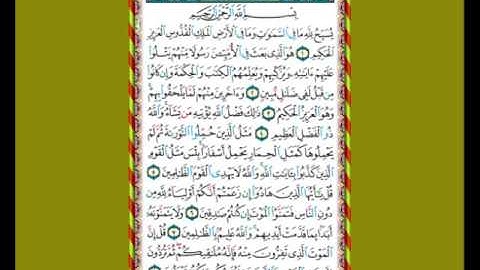 بِسْمِ اللَّهِ الرَّحْمَٰنِ الرَّحِيمِ
يُسَبِّحُ لِلَّهِ مَا فِي السَّمَٰوَٰتِ وَمَا فِي الْأَرْضِ الْمَلِكِ الْقُدُّوسِ الْعَزِيزِ
الْحَكِيمِ ۝١ هُوَ الَّذِي بَعَثَ فِي الْأُمِّيِّـۧنَ رَسُولًا مِّنْهُمْ يَتْلُوا
عَلَيْهِمْ ءَايَٰتِهِ وَيُزَكِّيهِمْ وَيُعَلِّمُهُمُ الْكِتَٰبَ وَالْحِكْمَةَ وَإِن كَانُوا
مِن قَبْلُ لَفِي ضَلَٰلٍ مُّبِينٍ ۝٢ وَءَاخَرِينَ مِنْهُمْ لَمَّا يَلْحَقُوا بِهِمْ
وَهُوَ الْعَزِيزُ الْحَكِيمُ ۝٣ ذَٰلِكَ فَضْلُ اللَّهِ يُؤْتِيهِ مَن يَشَاءُ وَاللَّهُ
ذُو الْفَضْلِ الْعَظِيمِ ۝٤ مَثَلُ الَّذِينَ حُمِّلُوا التَّوْرَىٰةَ ثُمَّ لَمْ
يَحْمِلُوهَا كَمَثَلِ الْحِمَارِ يَحْمِلُ أَسْفَارًا بِئْسَ مَثَلُ الْقَوْمِ
الَّذِينَ كَذَّبُوا بِـَٔايَٰتِ اللَّهِ وَاللَّهُ لَا يَهْدِي الْقَوْمَ الظَّٰلِمِينَ ۝٥
قُلْ يَٰأَيُّهَا الَّذِينَ هَادُوا إِن زَعَمْتُمْ أَنَّكُمْ أَوْلِيَاءُ لِلَّهِ مِن
دُونِ النَّاسِ فَتَمَنَّوُا الْمَوْتَ إِن كُنتُمْ صَٰدِقِينَ ۝٦ وَلَا يَتَمَنَّوْنَهُ
أَبَدًا بِمَا قَدَّمَتْ أَيْدِيهِمْ وَاللَّهُ عَلِيمٌ بِالظَّٰلِمِينَ ۝٧ قُلْ إِنَّ
الْمَوْتَ الَّذِي تَفِرُّونَ مِنْهُ فَإِنَّهُ مُلَٰقِيكُمْ ثُمَّ تُرَدُّونَ